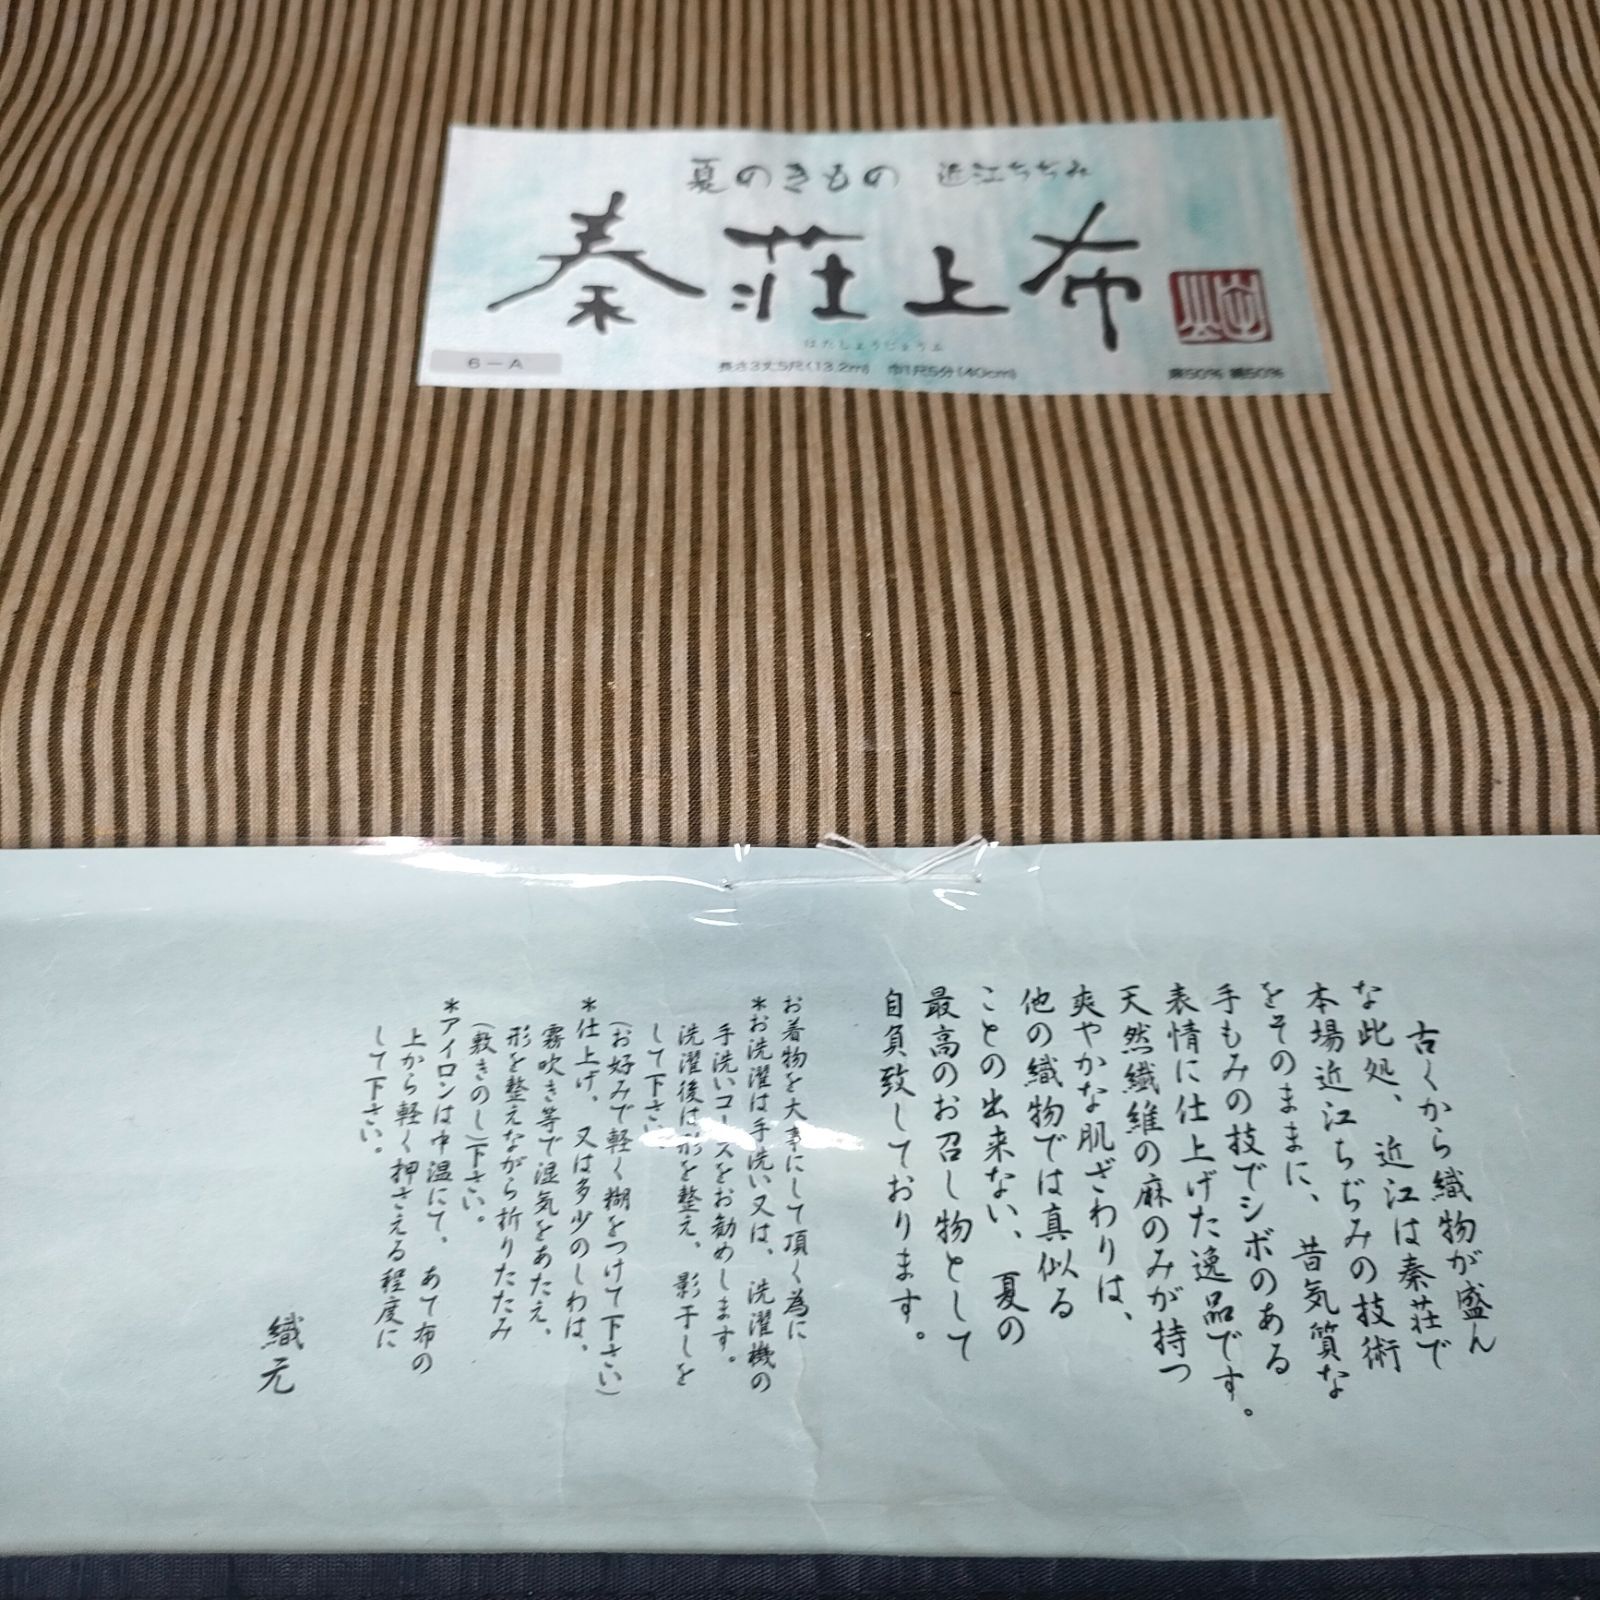 夏のきもの 近江ちぢみ
秦荘上布
はたしょうじょうふ
6-A
長さ3丈5尺(13.2m) 巾1尺5分(40cm)
麻50% 綿50%
古くから織物が盛ん
な此処、近江は秦荘で
本場近江ちぢみの技術
をそのままに、昔気質な
手もみの技でシボのある
表情に仕上げた逸品です。
天然繊維の麻のみが持つ
爽やかな肌ざわりは、
他の織物では真似る
ことの出来ない、夏の
最高のお召し物として
自負致しております。
お着物を大事にして頂く為に
*お洗濯は手洗い又は、洗濯機の
手洗いコースをお勧めします。
洗濯後は形を整え、影干しを
して下さい。
(お好みで軽く糊をつけて下さい)
*仕上げ、又は多少のしわは、
霧吹き等で湿気をあたえ、
形を整えながら折りたたみ
(敷きのし)下さい。
*アイロンは中温にて、あて布の
上から軽く押さえる程度に
して下さい。
織元